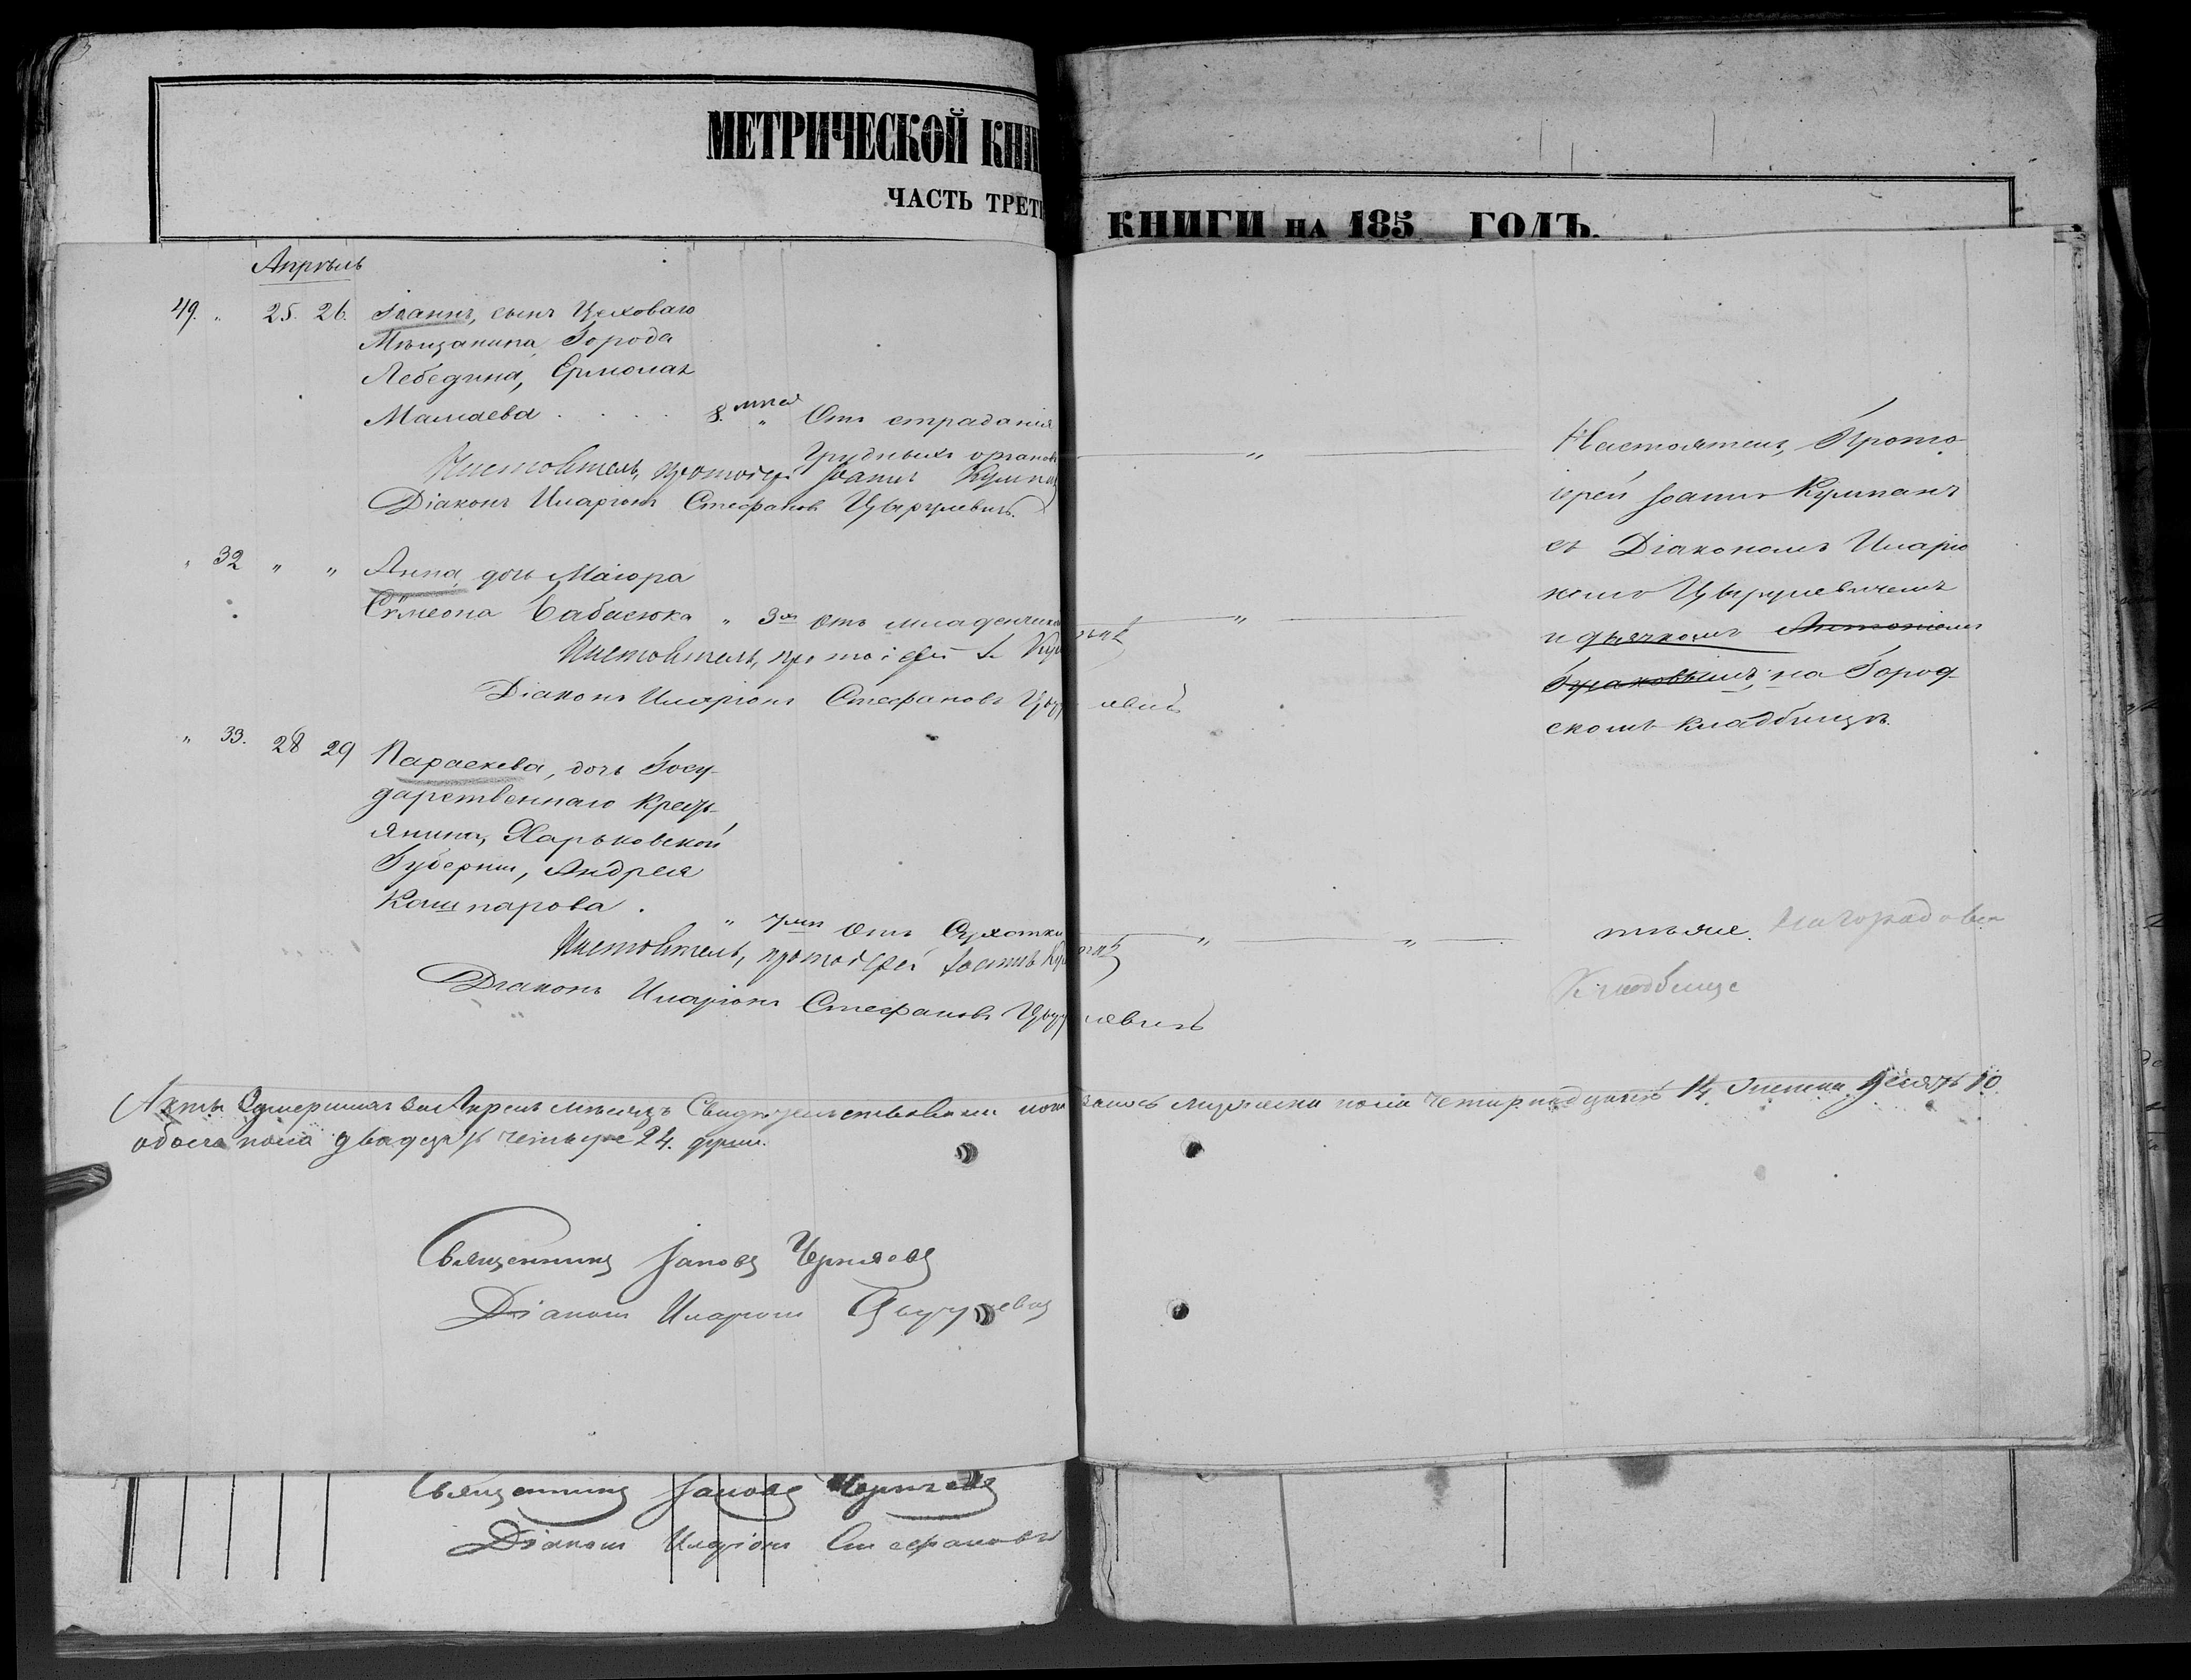 МЕТРИЧЕСКОЙ КНИ
ЧАСТЬ ТРЕТ
КНИГИ НА 185 ГОДЪ.
Апрѣль
49. " 25. 26. Іоаннъ, сынъ Цеховаго
Мѣщанина Города
Лебедина, Ермолая
Мамаева . . . . 8. лѣтъ " Отъ страданія
Грудныхъ органовъ
Настоятель, протоіерей Іоаннъ Кулпанъ
Діаконъ Иларіонъ Стефановъ Цырулевичъ.
Настоятель, Прото
іерей Іоаннъ Кулпанъ
съ Діакономъ Иларіо
номъ Цырулевичемъ
и дьячкомъ Антоніемъ
на Город
скомъ кладбищѣ.
" 32 " " Анна, дочь Маіора
Сѵмеона " 3 отъ младенческ
Настоятель, протоіерей І. Кулпанъ
Діаконъ Иларіонъ Стефановъ Цырулевичъ
" 33. 28 29 Параскева, дочь Госу-
дарственнаго Кресть-
янина, Харьковской
Губерніи, Андрея
Кашпарова .
" 7 Отъ Сухотки " "
тѣмже. На городовом
Кладбище
Настоятель, протоіерей Іоаннъ Кулпанъ
Діаконъ Иларіонъ Стефановъ Цырулевичъ
Актъ Оумершихъ за Апрель мѣсяцъ Свидѣтельствовали мужеска пола четырнадцать 14 женска десять 10
обоего пола двадцать четыре 24. души.
Священникъ Іаковъ Черняевъ
Діаконъ Иларіонъ Цырулевичъ
Священникъ Іаковъ Черняевъ
Діаконъ Иларіонъ Стефановъ